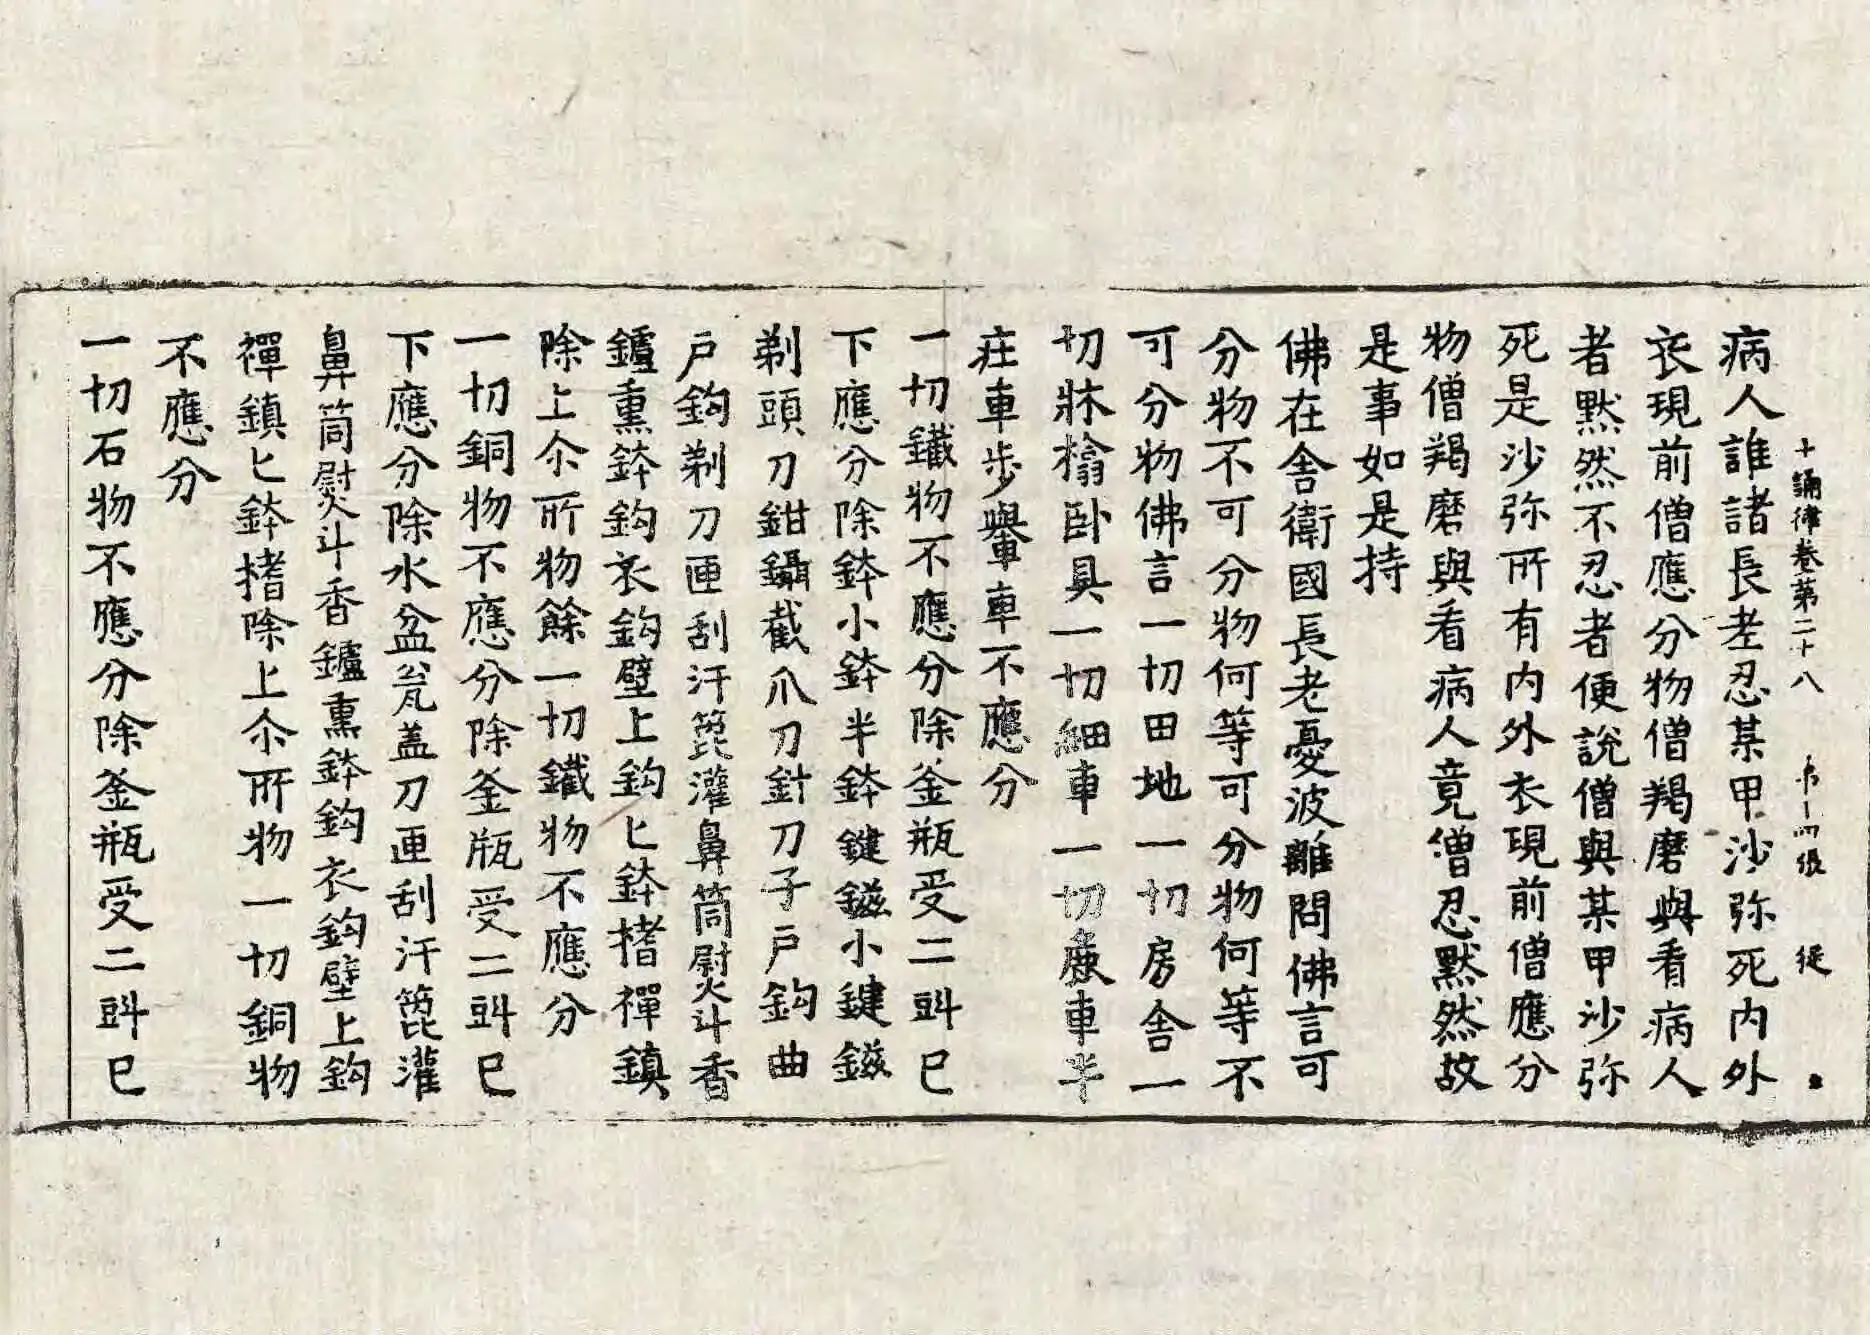 十誦律卷第二十八 第十四張 徒
病人誰諸長老忍某甲沙弥死內外
衣現前僧應分物僧羯磨與看病人
者默然不忍者便說僧與某甲沙弥
死是沙弥所有內外衣現前僧應分
物僧羯磨與看病人竟僧忍默然故
是事如是持
佛在舍衛國長老憂波離問佛言可
分物不可分物何等可分物何等不
可分物佛言一切田地一切房舍一
切牀榻臥具一切細車一切麁車半
莊車步轝車不應分
一切鐵物不應分除釜瓶受二㪷已
下應分除鉢小鉢半鉢鍵鎡小鍵鎡
剃頭刀鉗鑷截爪刀針刀子戶鈎曲
戶鈎剃刀匣刮汙篦灌鼻筒熨斗香
鑪熏鉢鈎衣鈎壁上鈎匕鉢榰禪鎮
除上尒所物餘一切鐵物不應分
一切銅物不應分除釜瓶受二㪷已
下應分除水盆瓮盖刀匣刮汙篦灌
鼻筒熨斗香鑪熏鉢鈎衣鈎壁上鈎
禪鎮匕鉢榰除上尒所物一切銅物
不應分
一切石物不應分除釜瓶受二㪷已